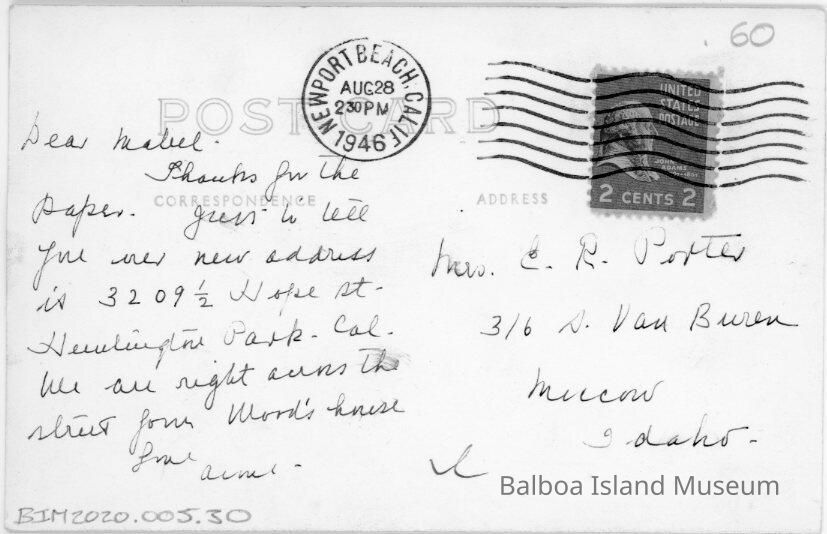 60
NEWPORT BEACH, CALIF.
AUG 28
2 30 PM
1946
UNITED
STATES
POSTAGE
JOHN
ADAMS
2 CENTS 2
POST CARD
CORRESPONDENCE
ADDRESS
Dear Mabel.
Thanks for the
paper. Just to tell
you our new address
is 3209 1/2 Hope St.
Huntington Park. Cal.
We are right across the
street from Wood's house
Love
Mrs. E. R. Porter
316 S. Van Buren
Moscow
Idaho.
Balboa Island Museum
BIM2020.005.30